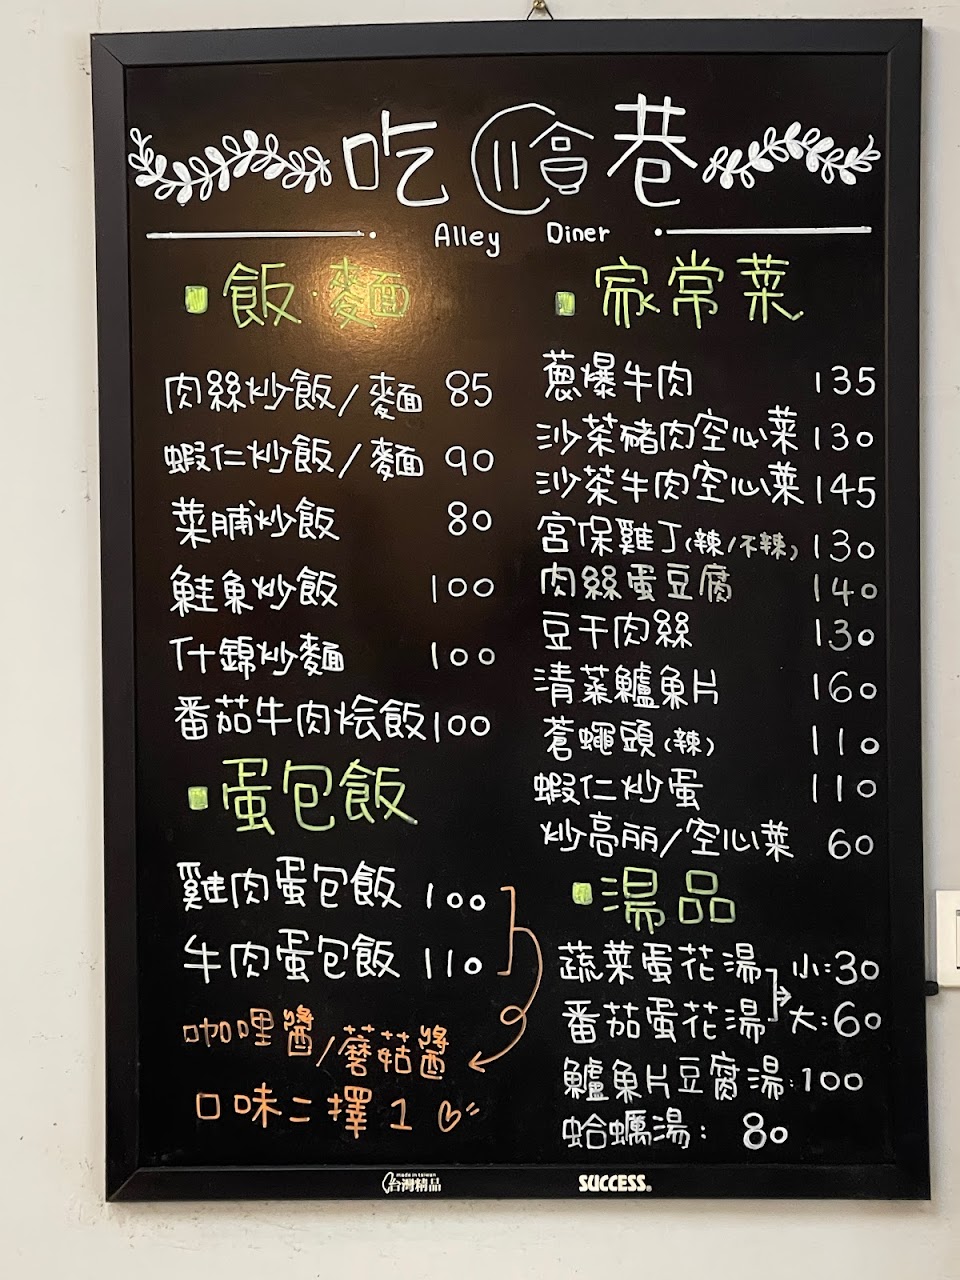 吃 巷
Alley Diner
飯.麵
肉絲炒飯/麵 85
蝦仁炒飯/麵 90
菜脯炒飯 80
鮭魚炒飯 100
什錦炒麵 100
番茄牛肉燴飯 100
蛋包飯
雞肉蛋包飯 100
牛肉蛋包飯 110
咖哩醬/蘑菇醬
口味二擇1
家常菜
蔥爆牛肉 135
沙茶豬肉空心菜 130
沙茶牛肉空心菜 145
宮保雞丁(辣/不辣) 130
肉絲蛋豆腐 140
豆干肉絲 130
清蒸鱸魚片 160
蒼蠅頭(辣) 110
蝦仁炒蛋 110
炒高丽/空心菜 60
湯品
蔬菜蛋花湯 小:30
番茄蛋花湯 大:60
鱸魚片豆腐湯:100
蛤蠣湯: 80
made in taiwan
台灣精品
SUCCESS®